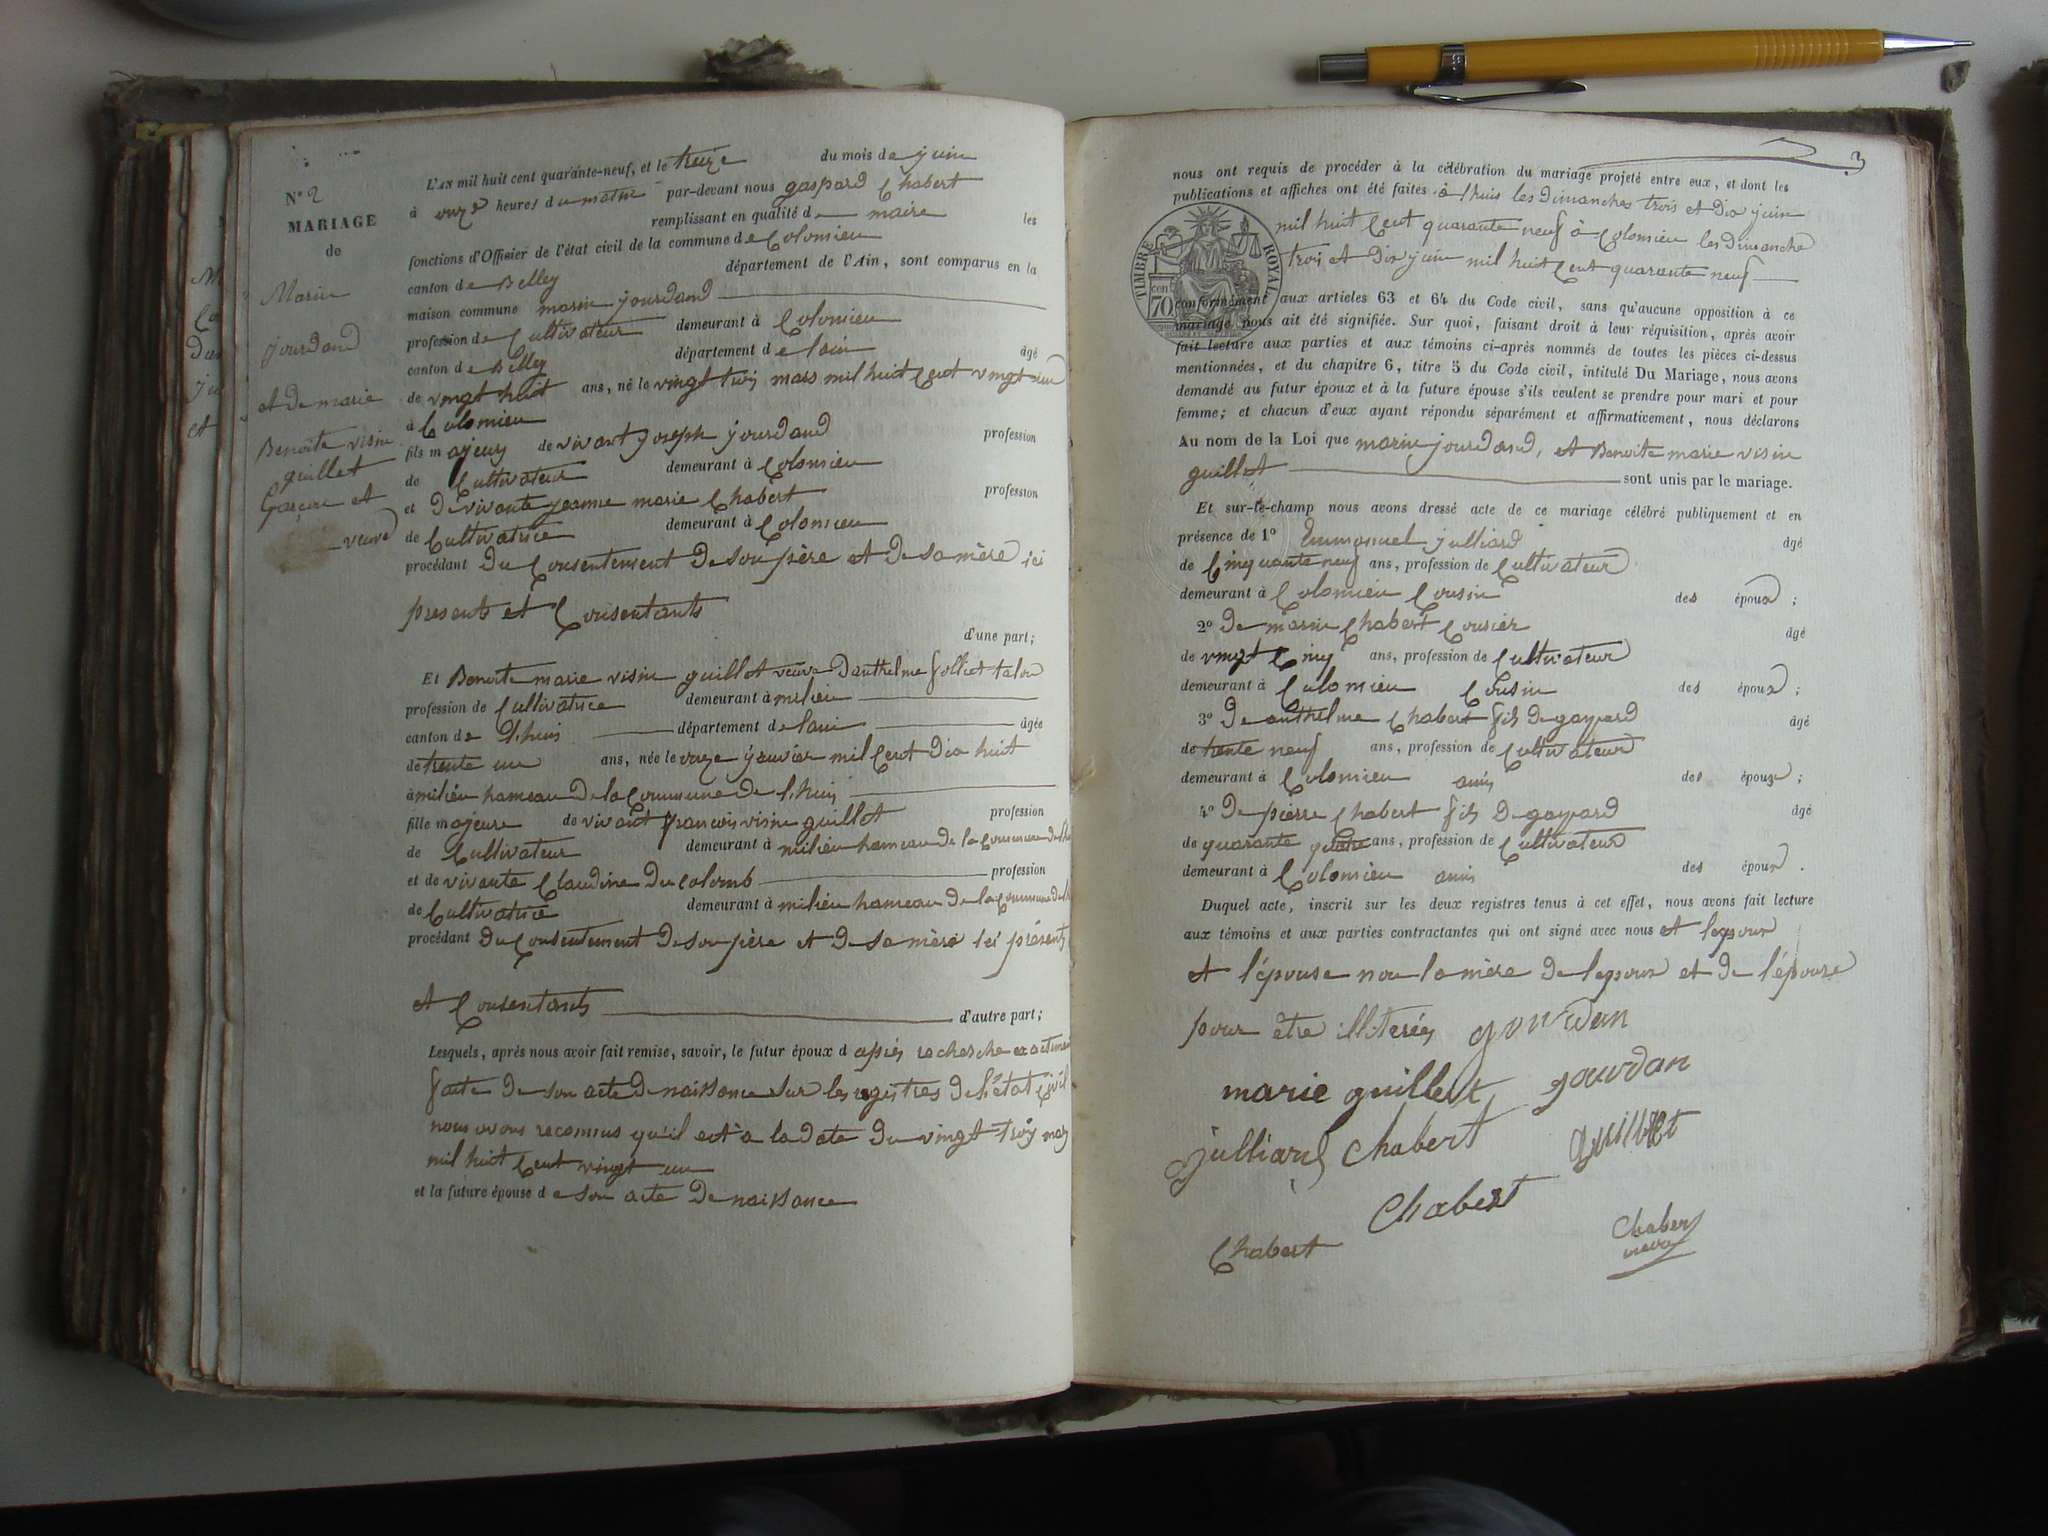 N° 2
MARIAGE
de
Marin
jourdand
et de marie
Benoite visin
guillet
Garçon et
veuve
L'AN mil huit cent quarante-neuf, et le treize du mois de juin
à onze heures du matin par-devant nous gaspard Chabert
remplissant en qualité de maire les
fonctions d'Officier de l'état civil de la commune de Colomieu
canton de Belley département de l'Ain, sont comparus en la
maison commune marin jourdand
profession de Cultivateur demeurant à Colomieu
canton de Belley département de lain âgé
de vingt huit ans, né le vingt trois mars mil huit Cent vingt un
à Colomieu
fils majeur de vivant joseph jourdand profession
de Cultivateur demeurant à Colomieu
et de vivante jeanne marie Chabert profession
de Cultivatrice demeurant à Colomieu
procédant du Consentement de son père et de sa mère ici
presents et Consentants
d'une part;
Et Benoite marie visin guillet veuve danthelme folliet talon
profession de Cultivatrice demeurant à milieu
canton de Lhuis département de lain âgée
de trente un ans, née le onze janvier mil Cent dix huit
à milieu hameau de la Commune de Lhuis
fille majeure de vivant francois visin guillet profession
de Cultivateur demeurant à milieu hameau de la Commune de
et de vivante Claudine du colomb profession
de Cultivatrice demeurant à milieu hameau de la Commune de
procédant du Consentement de son père et de sa mère ici présents
et Consentants d'autre part;
Lesquels, après nous avoir fait remise, savoir, le futur époux d apiés recherche exactement
faite de son acte de naissance sur les registres de l'état Civil
nous avons reconnus qu'il est à la date du vingt trois mars
mil huit Cent vingt un
et la future épouse de son acte de naissance
3
nous ont requis de procéder à la célébration du mariage projeté entre eux, et dont les
publications et affiches ont été faites à Lhuis les dimanches trois et dix juin
mil huit Cent quarante neuf à Colomieu les dimanche
trois et dix juin mil huit Cent quarante neuf
TIMBRE ROYAL
70 cen
conformément aux articles 63 et 64 du Code civil, sans qu'aucune opposition à ce
mariage nous ait été signifiée. Sur quoi, faisant droit à leur réquisition, après avoir
fait lecture aux parties et aux témoins ci-après nommés de toutes les pièces ci-dessus
mentionnées, et du chapitre 6, titre 5 du Code civil, intitulé Du Mariage, nous avons
demandé au futur époux et à la future épouse s'ils veulent se prendre pour mari et pour
femme; et chacun d'eux ayant répondu séparément et affirmativement, nous déclarons
Au nom de la Loi que marin jourdand, et Benoite marie visin
guillet sont unis par le mariage.
Et sur-le-champ nous avons dressé acte de ce mariage célébré publiquement et en
présence de 1° Emmanuel julliard âgé
de Cinquante neuf ans, profession de Cultivateur
demeurant à Colomieu Cousin des époux;
2° de marin Chabert Cousier âgé
de vingt Cinq ans, profession de Cultivateur
demeurant à Colomieu Cousin des époux;
3° de anthelme Chabert fils de gaspard âgé
de trente neuf ans, profession de Cultivateur
demeurant à Colomieu amis des épouze;
4° de pierre Chabert fils de gaspard âgé
de quarante quatre ans, profession de Cultivateur
demeurant à Colomieu amis des époux.
Duquel acte, inscrit sur les deux registres tenus à cet effet, nous avons fait lecture
aux témoins et aux parties contractantes qui ont signé avec nous et lepoux
et l'épouse non la mère de lepoux et de l'épouse
pour être illiterées jourdan
marie guillert jourdan
julliard Chabert guilliet
Chabert
Chabert Chabert